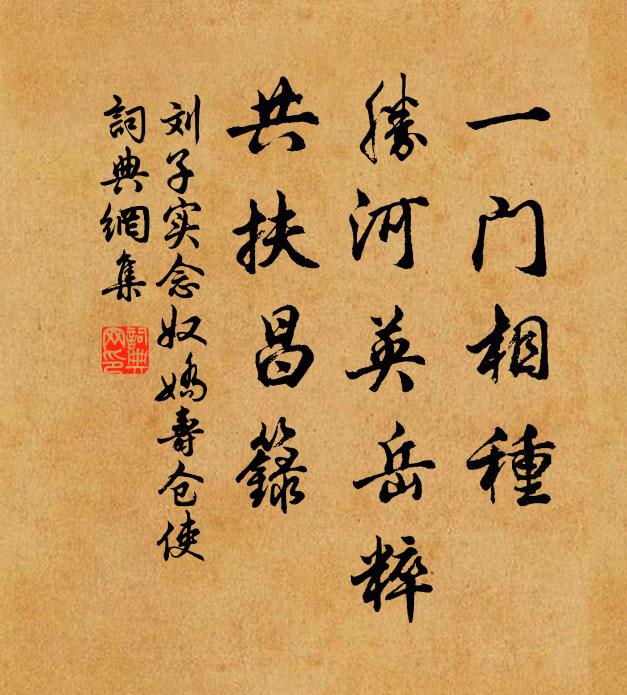 一门相種
勝河英岳粹
共扶昌籙
刘子实念奴娇壽仓使
詞典網集
詞典網印